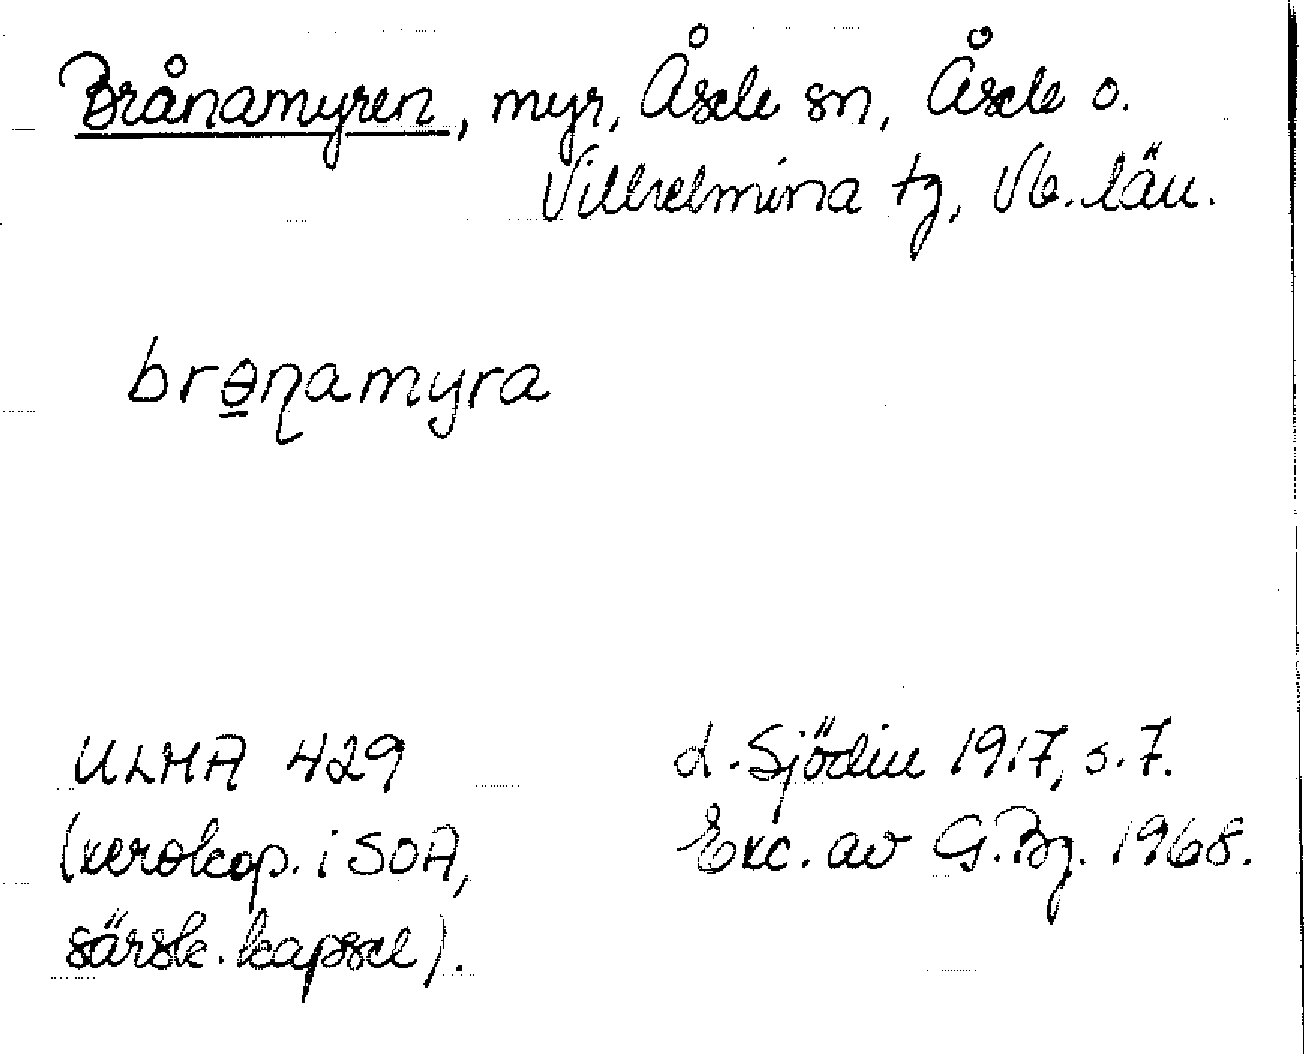 Brånamyren, myr, Åsele sn, Åsele o.
Vilhelmina tg, Vb. län.
brɵ̲ɳamyra
ULMA 429
(xerokop. i SOA,
särsk. kapsel).
L. Sjödin 1917, s. 7.
Exc. av G. Bg. 1968.